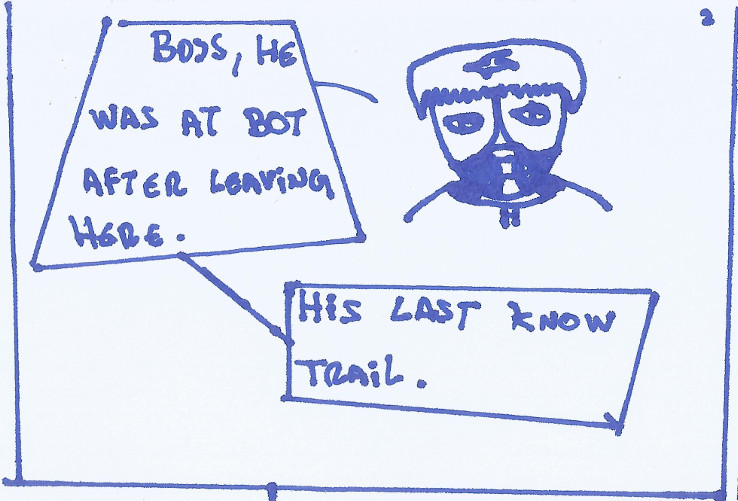 2
BOSS, HE
WAS AT BOT
AFTER LEAVING
HERE.
HIS LAST KNOW
TRAIL.